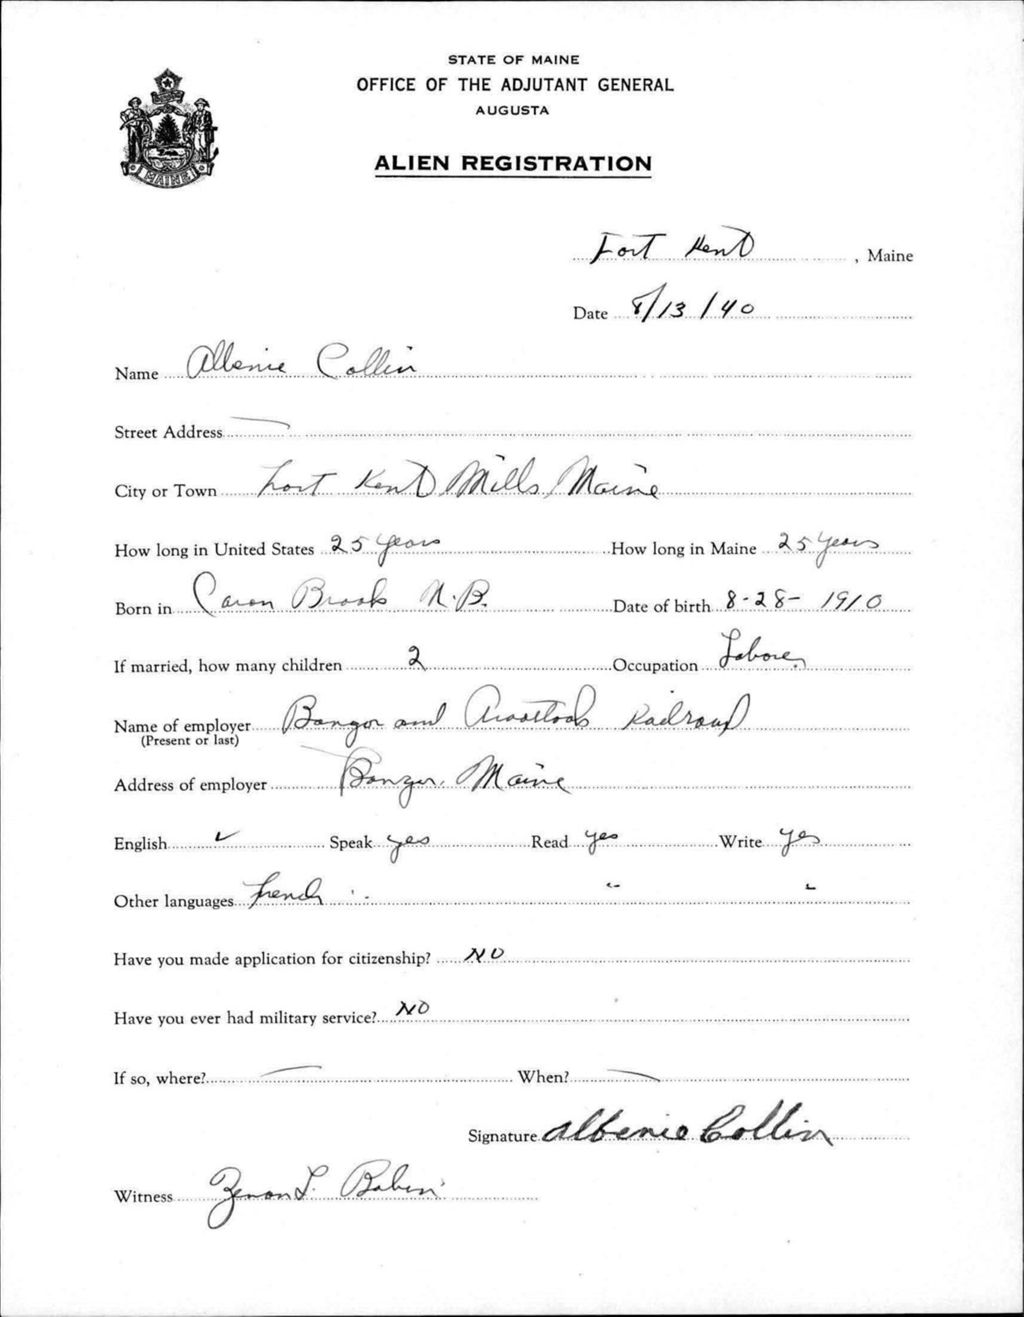 STATE OF MAINE
OFFICE OF THE ADJUTANT GENERAL
AUGUSTA
ALIEN REGISTRATION
MAINE
Fort Kent, Maine
Date 8/13/40
Name Albenie Collin
Street Address —
City or Town Fort Kent Mills, Maine
How long in United States 25 years How long in Maine 25 years
Born in Caron Brook N.B. Date of birth 8-28-1910
If married, how many children 2 Occupation Laborer
Name of employer Bangor and Aroostook Railroad
(Present or last)
Address of employer Bangor, Maine
English ✓ Speak yes Read yes Write yes
Other languages French " " "
Have you made application for citizenship? NO
Have you ever had military service? NO
If so, where? — When? —
Signature Albenie Collin
Witness Zenon L. Babin